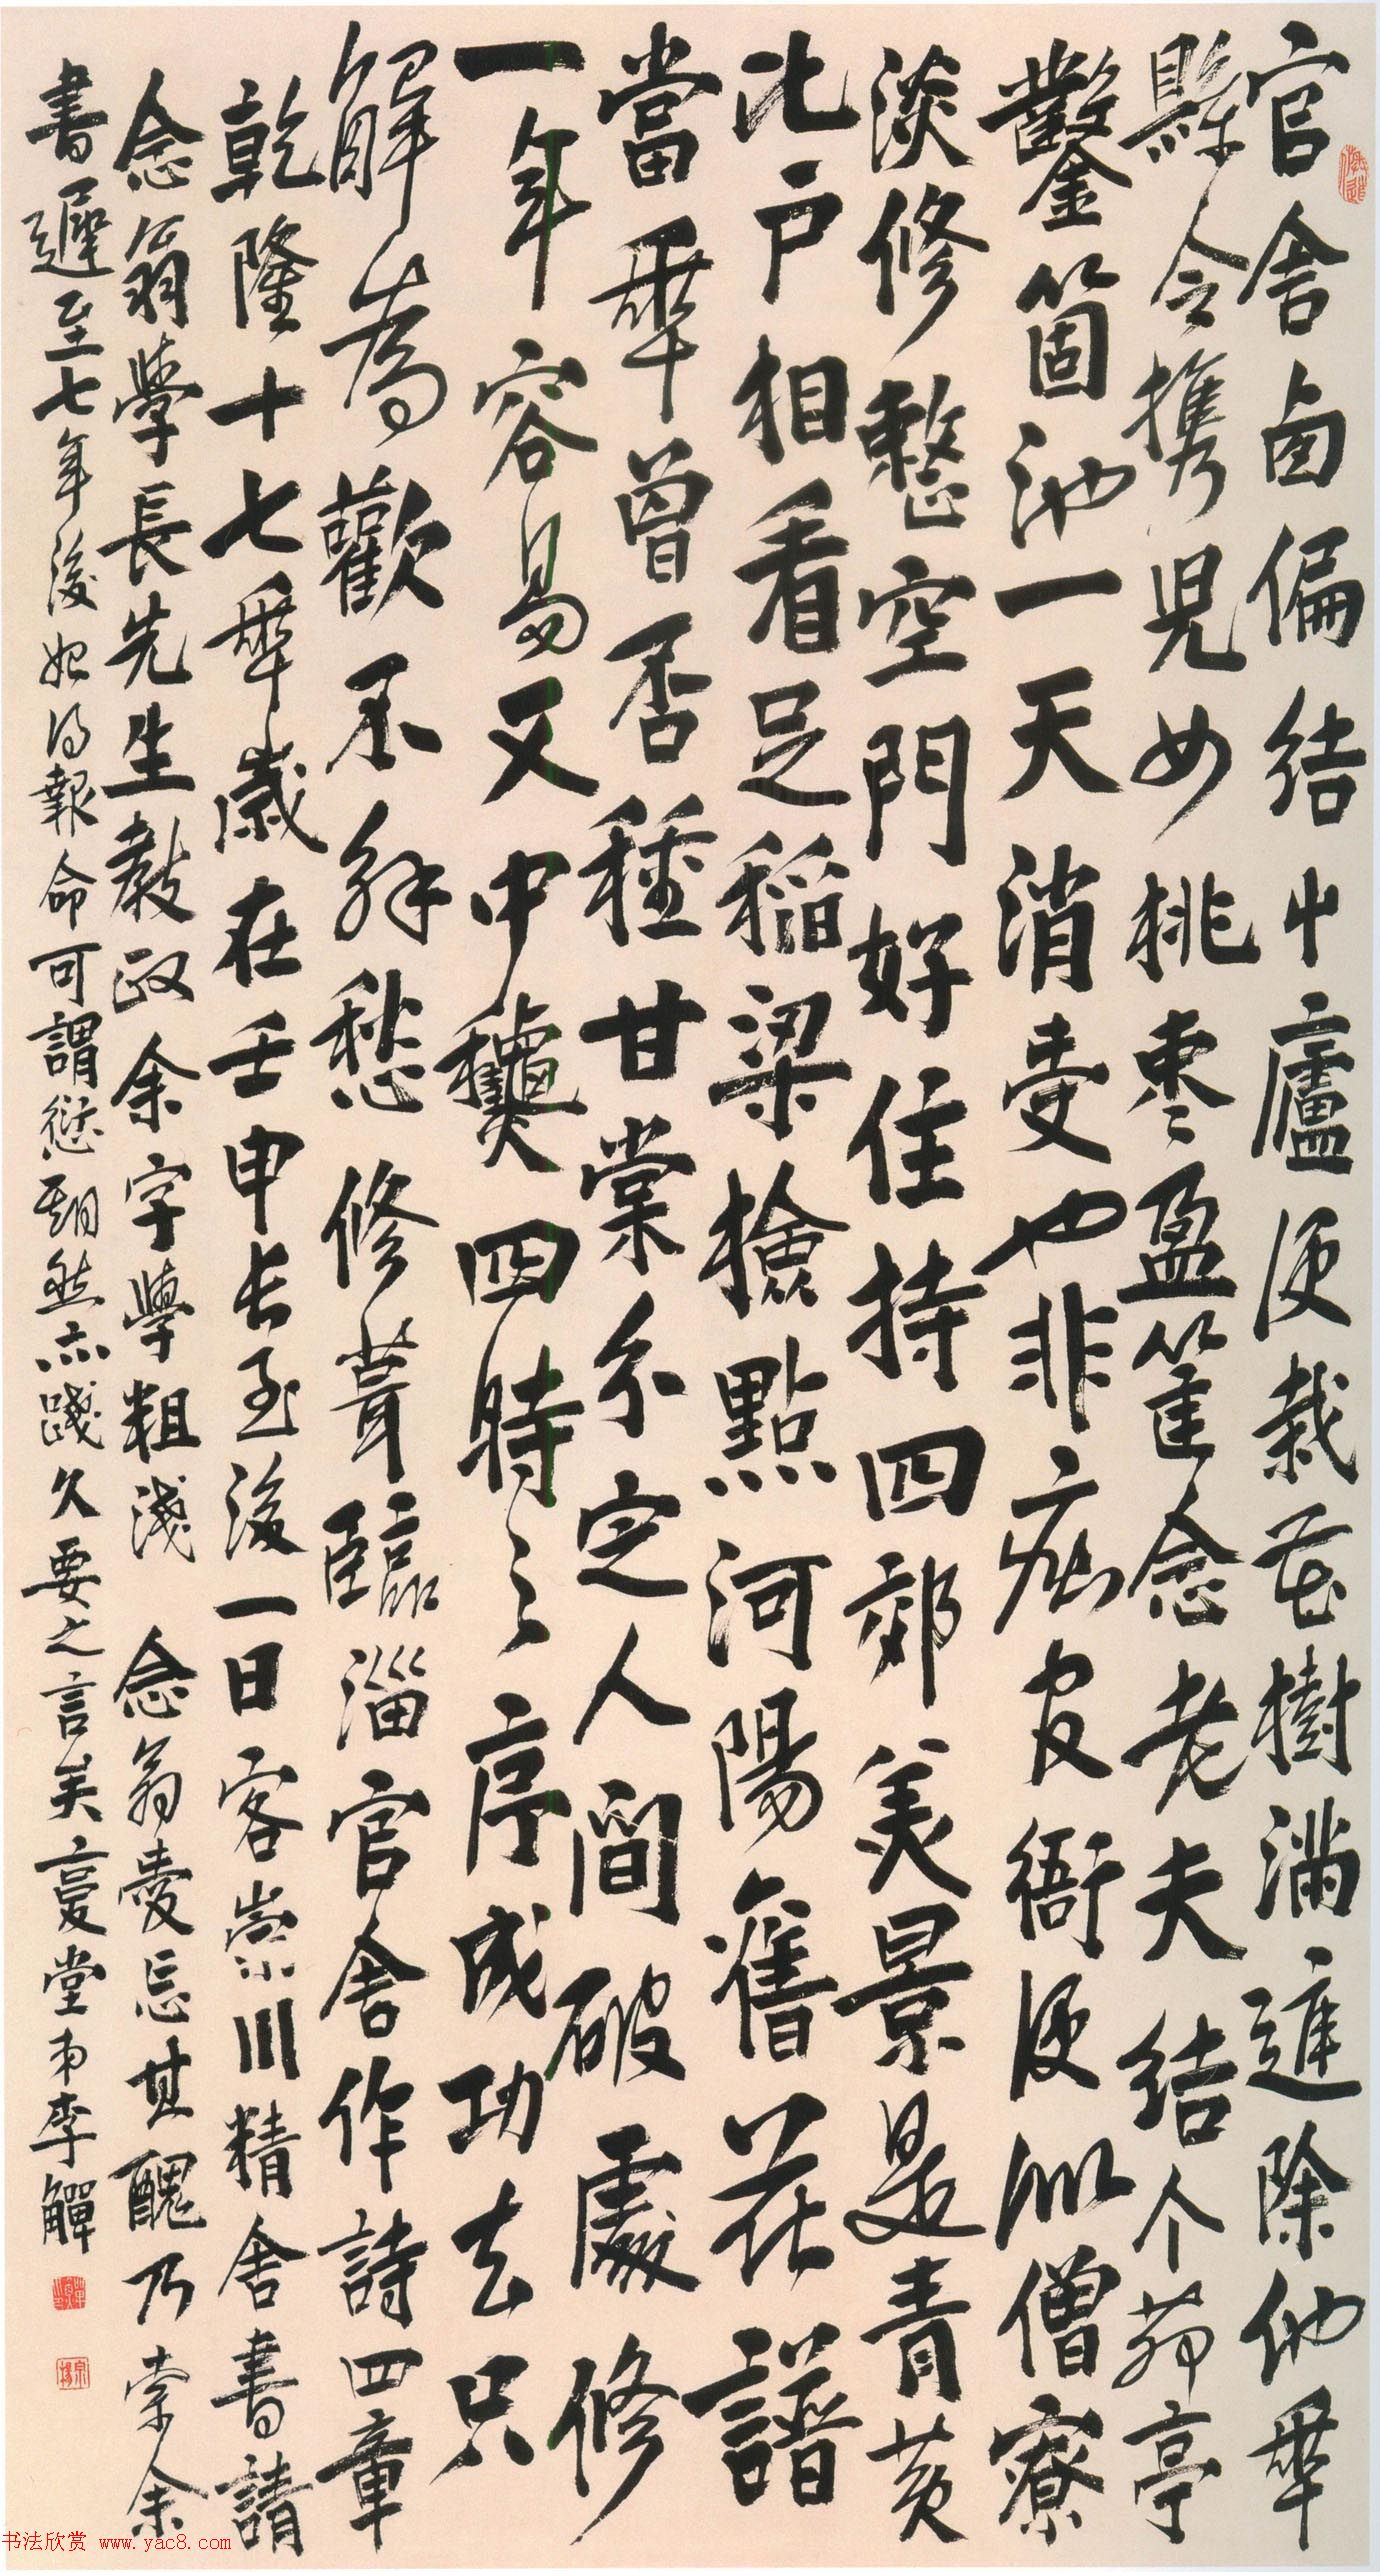 官舍卤偏結小廬便栽花樹滿進除他年
縣令攜兒女桃棗盈筐念老夫結个茆亭
鑿箇池一天消受也非疵官衙便似僧寮
淡修整空門好住持四郊美景是青黃
比戶相看足稻粱撿點河陽舊花譜
當年曾否種甘棠分定人間破處修
一年容易又中龝四時之序成功去只
解為歡不解愁修葺臨淄官舍作詩四章
乾隆十七年歲在壬申長至後一日客崇川精舍書請
念翁學長先生教政余字學粗淺念翁愛忘其醜乃索余
書遲至七年後始得報命可謂愆期然亦踐久要之言矣憂堂弟李觶
书法欣赏 www.yac8.com